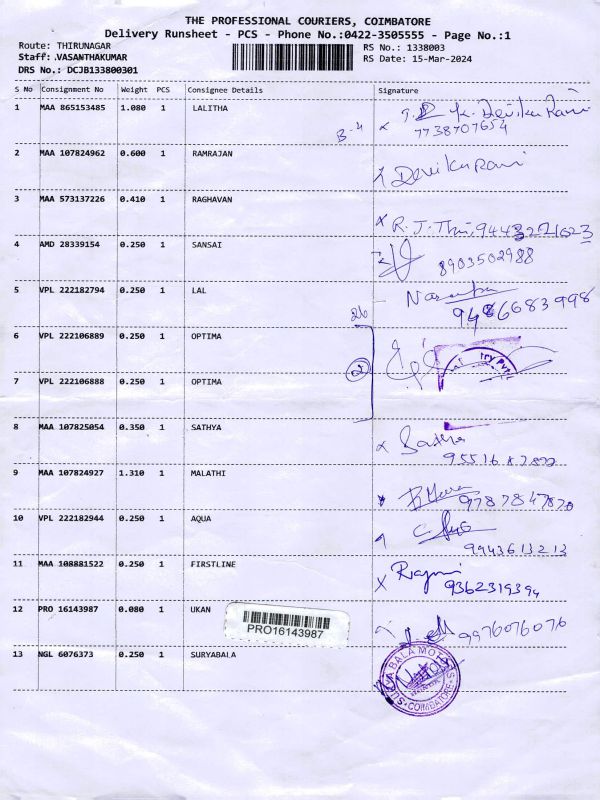 THE PROFESSIONAL COURIERS, COIMBATORE
Delivery Runsheet - PCS - Phone No.:0422-3505555 - Page No.:1
Route: THIRUNAGAR RS No.: 1338003
Staff: .VASANTHAKUMAR RS Date: 15-Mar-2024
DRS No.: DCJB133800301
S No Consignment No Weight PCS Consignee Details Signature
1 MAA 865153485 1.080 1 LALITHA K. Devika Rani
B-4 7738707654
2 MAA 107824962 0.600 1 RAMRAJAN Devikarani
3 MAA 573137226 0.410 1 RAGHAVAN
4 AMD 28339154 0.250 1 SANSAI
8903502988
5 VPL 222182794 0.250 1 LAL
9486683998
6 VPL 222106889 0.250 1 OPTIMA
7 VPL 222106888 0.250 1 OPTIMA
8 MAA 107825054 0.350 1 SATHYA
9 MAA 107824927 1.310 1 MALATHI
10 VPL 222182944 0.250 1 AQUA
9943613213
11 MAA 108881522 0.250 1 FIRSTLINE
9362319394
12 PRO 16143987 0.080 1 UKAN 9976076076
PRO16143987
13 NGL 6076373 0.250 1 SURYABALA
COIMBATORE